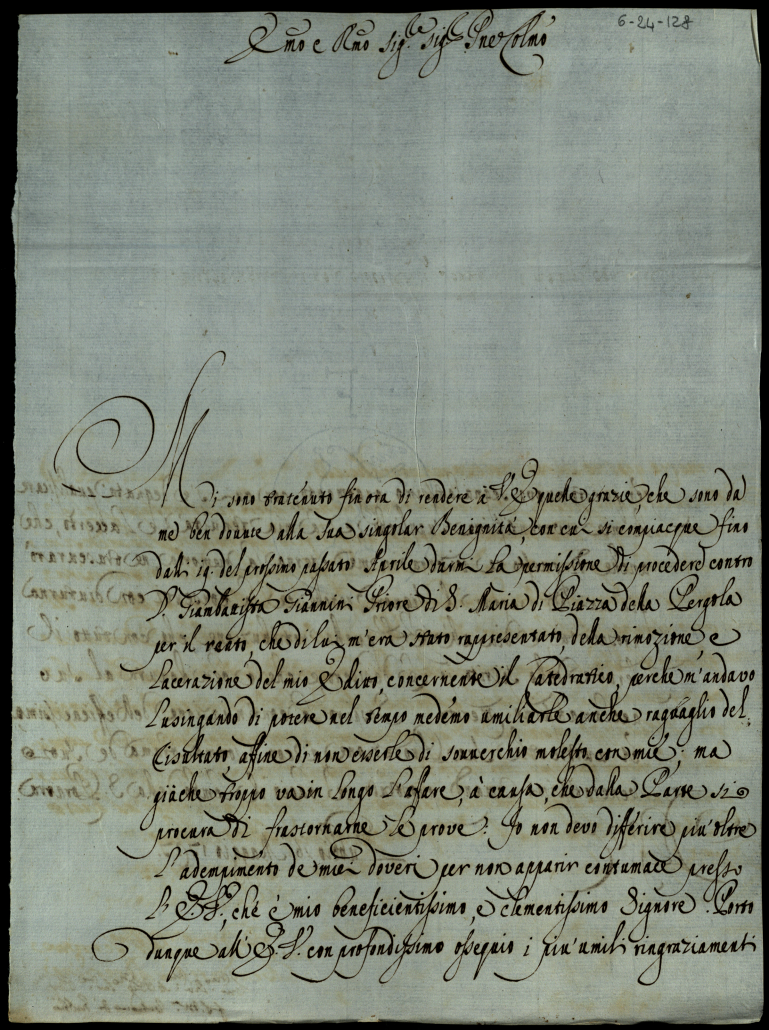 6-24-128
Emo e Rmo Sig.re Sig.re Pne Colmo
Mi sono tratenuto finora di rendere à V. E. quelle grazie, che sono da
me ben dovute alla Sua singolar Benignità, con cui si compiacque fino
dalli 19. del prossimo passato Aprile darmi la permissione di procedere contro
D. Giambattista Giannini Priore di S. Maria di Piazza della Pergola
per il reato, che di lui m'era stato rappresentato, della rimozione, e
lacerazione del mio Editto, concernente il Catedratico, perche m'andavo
lusingando di potere nel tempo medemo umiliarle anche raguaglio del
risultato affine di non esserle di souuerchio molesto con mie; ma
giàche troppo va in longo l'affare, à causa, che dalla Parte si
procura di frastornarne le prove: Io non devo differire più oltre
l'adempimento de miei doveri per non apparir contumace presso
l'E. V., che è mio beneficientissimo, e clementissimo Signore. Porto
dunque all'E. V. con profondissimo ossequio i più umili ringraziamenti